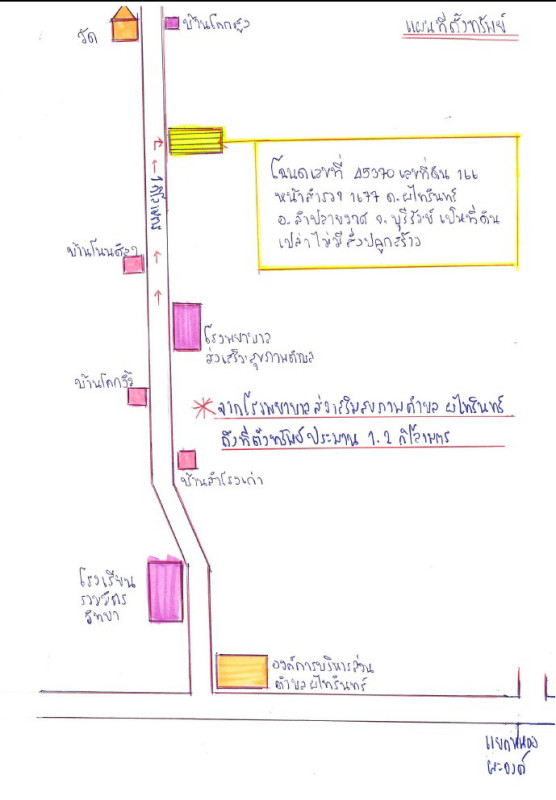 แผนที่ตั้งทรัพย์
วัด
บ้านโคกสูง
โฉนดเลขที่ 45370 เลขที่ดิน 166
หน้าสำรวจ 1677 ต.ผไทรินทร์
อ.ลำปลายมาศ จ.บุรีรัมย์ เป็นที่ดิน
เปล่า ไม่มีสิ่งปลูกสร้าง
กิโลเมตร
โรงพยาบาล
ส่งเสริมสุขภาพตำบล
จากโรงพยาบาลส่งเสริมสุขภาพตำบล ผไทรินทร์
ถึงที่ตั้งทรัพย์ประมาณ 1.2 กิโลเมตร
บ้านสำโรงเก่า
โรงเรียน
วิทยา
องค์การบริหารส่วน
ตำบลผไทรินทร์
แยกหนอง